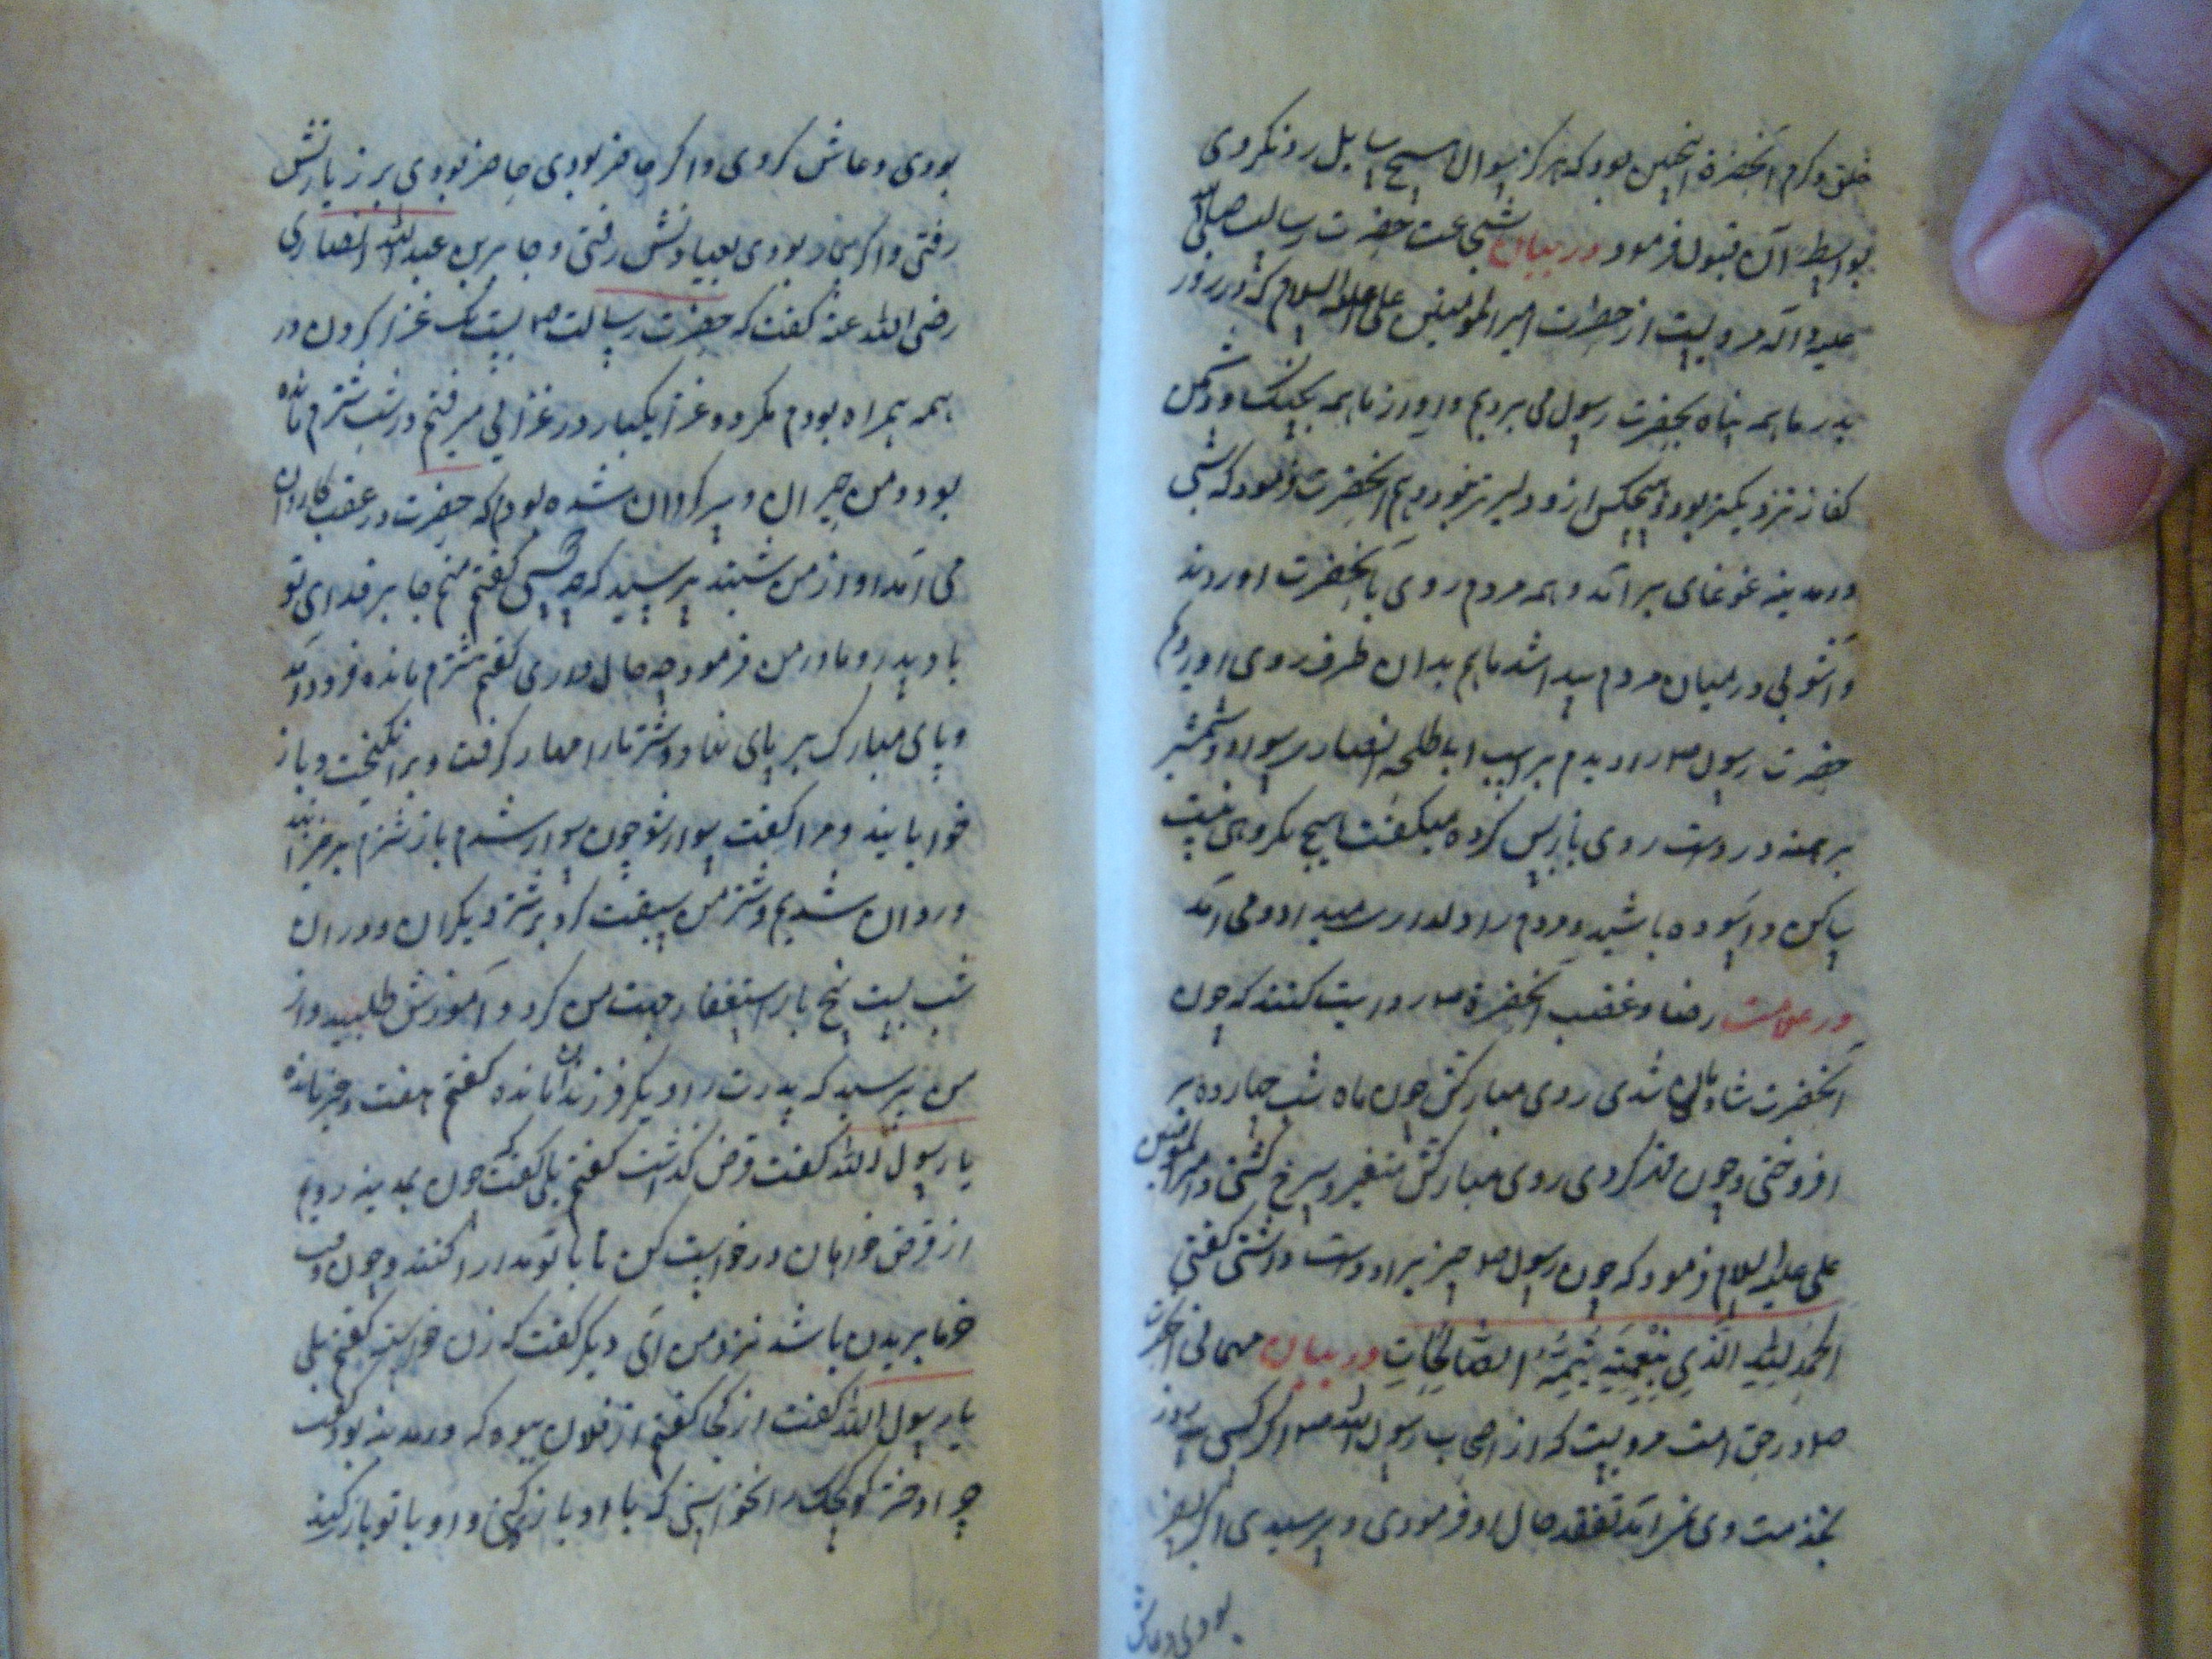 خلق و کرم آنحضرة اینچنین بود که هرکز سوال هیچ سایل رد نکردی
بواسطهٔ آن قبول فرمود در بیان شجاعت حضرت رسالت صلی الله
علیه و آله مرویست از حضرت امیرالمومنین علی علیه السلام که در روز
بدر ما همه پناه بحضرت رسول می بردیم و او از ما همه بجنک و دشمن
کفار نزدیکتر بود و هیچکس ازو دلیرتر نبود و هم آنحضرت فرمود که شبی
در مدینه غوغای برآمد و همه مردم روی بآنحضرت آوردند
و آشوبی در میان مردم پیدا شد ما هم بدان طرف روی آوردیم
حضرت رسول صد را دیدم بر اسب ابا طلحه انصاری سوار و شمشیر
برهنه در دست روی باز پس کرده میکفت هیچ مکروهی نیست
ساکن و آسوده باشید و مردم را دلداری میداد و می آمد
در علامت رضا و غضب آنحضرة صد روایت کنند که چون
آنحضرت شادمان شدی روی مبارکش چون ماه شب چهارده بر
افروختی و چون قهر کردی روی مبارکش متغیر و سرخ کشتی و امیرالمومنین
علی علیه السلام فرمود که چون رسول صد چیز برا دوست داشتی کفتی
الحمد لله الذی بنعمته یتم الصالحات در بیان مهربانی آنحضرت
صد در حق امت مرویست که از اصحاب رسول الله صد اکر کسی سه روز
بخدمت وی نیامد تفقد حال او فرمودی و پرسیدی اکر بسفر
بودی دعاش
بودی دعاش کردی و اکر حاضر بودی حاضر نبودی بر زیارتش
رفتی و اکر بیمار بودی بعیادتش رفتی و جابر بن عبدالله انصاری
رضی الله عنه کفت که حضرت رسالت صد بیست یک غزا کردن در
همه همراه بودم مکر دو غزا یکبار در غزایی میرفتم در شب شترم مانده
بود و من حیران و سرکردان شده بودم که حضرت در عقب کاروان
می آمد آواز من شنید پرسید که چه کسی کفتم منم جابر فدای تو
باد پدر و مادر من فرمود چه حال داری کفتم شترم مانده فرود آمد
و پای مبارک بر پای نهاد و شتر ما را مهار کرفت و برانکیخت و باز
خوابانید و مرا کفت سوار شو چون سوار شدم باز شترم برخیزانید
و روان شدیم و شتر من سبقت کرد بر شتر دیکران و در آن
شب بیست پنج بار استغفار جهت من کرد و آمرزش طلبید و از
من پرسید که پدرت را دیکر فرزندان مانده کفتم هفت دختر مانده
یا رسول الله کفت قرض کذاشت کفتم بلی کفت که چون بمدینه رویم
از قرض خواهان درخواست کن تا با تو مدارا کنند و چون وقت
خرما بریدن باشد نزد من آی دیکر کفت که زن خواستی کفتم بلی
یا رسول الله کفت از کجا کفتم از فلان بیوه که در مدینه بود کفت
چرا دختر کوچک را نخواستی که با او بازی کنی و او با تو بازی کند